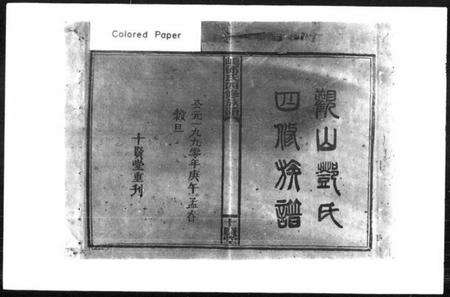 Colored Paper
觀山鄧氏
四修族譜
公元一九九零年庚午孟春
穀旦
十賢堂重刊